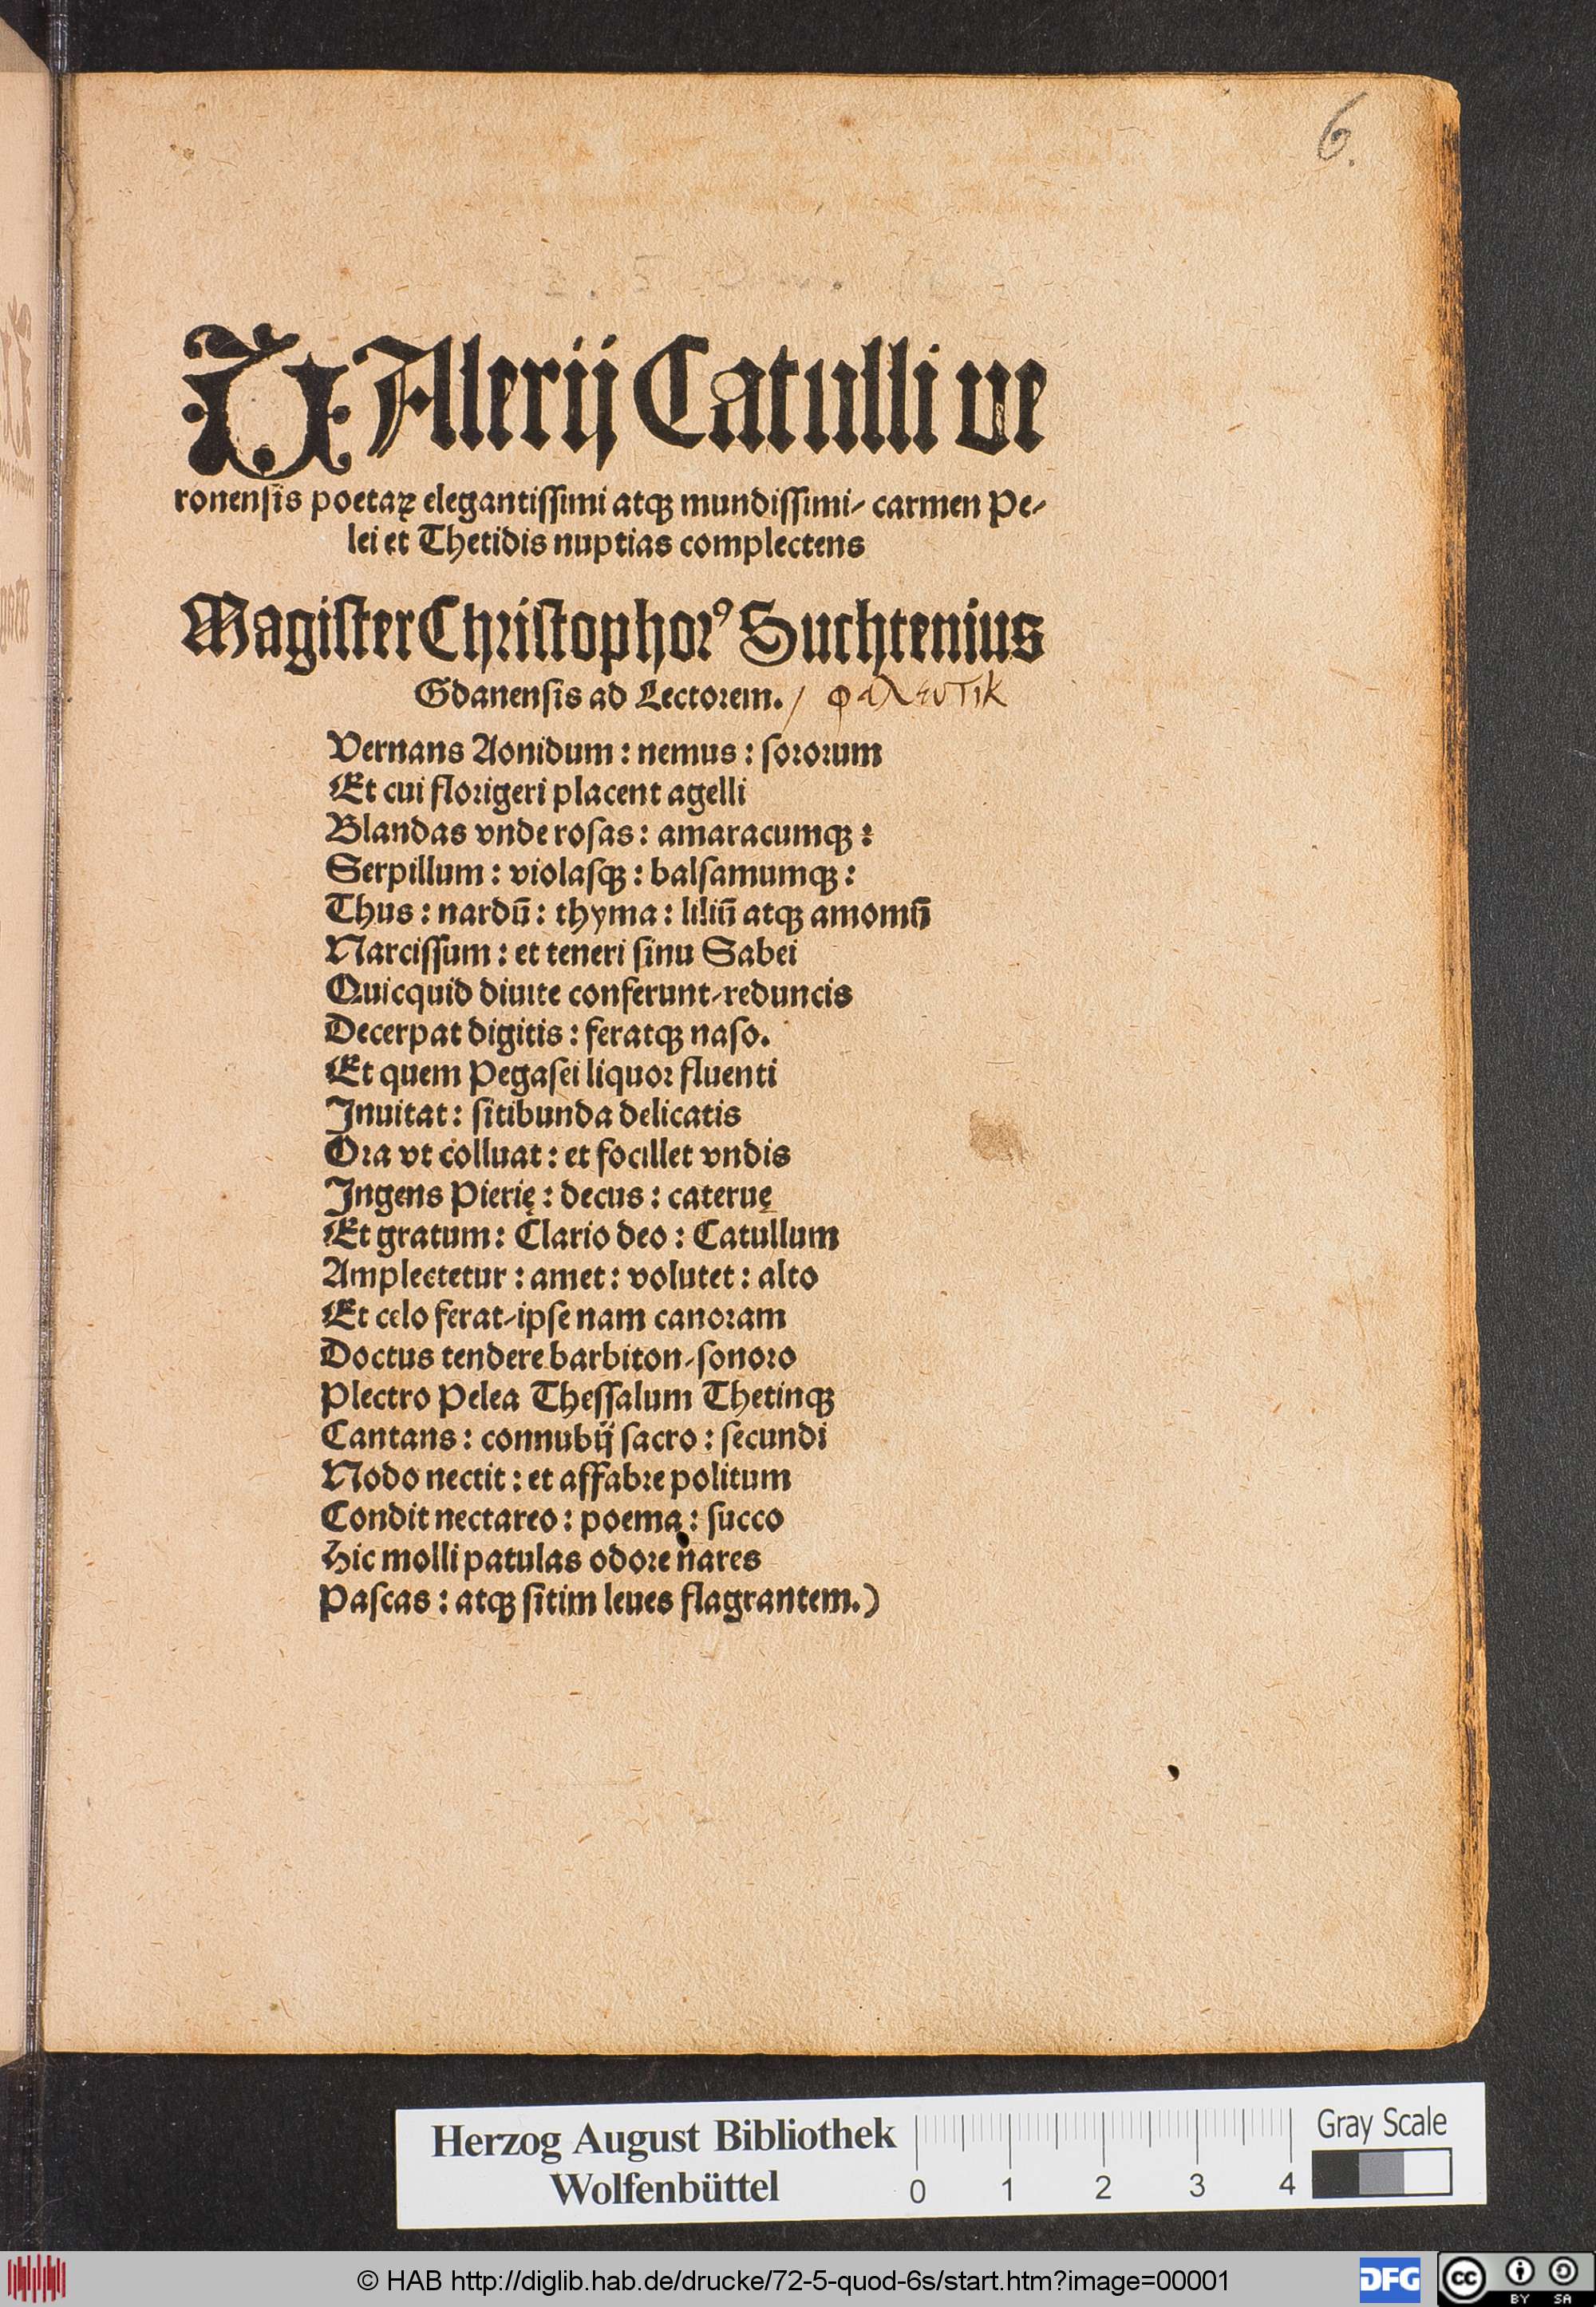 6.
VAlerij Catulli ve
ronensis poetaꝝ elegantissimi atqꝫ mundissimi/ carmen Pe/
lei et Thetidis nuptias complectens
Magister Christophorꝰ Suchtenius
Gdanensis ad Lectorem. / φαλευτικ
Vernans Aonidum : nemus : sororum
Et cui florigeri placent agelli
Blandas vnde rosas : amaracumqꝫ :
Serpillum : violasqꝫ : balsamumqꝫ :
Thus : nardū : thyma : liliū atqꝫ amomū
Narcissum : et teneri sinu Sabei
Quicquid diuite conferunt/reduncis
Decerpat digitis : feratqꝫ naso.
Et quem Pegasei liquor fluenti
Inuitat : sitibunda delicatis
Ora vt colluat : et focillet vndis
Ingens Pierię : decus : cateruę
Et gratum : Clario deo : Catullum
Amplectetur : amet : volutet : alto
Et celo ferat/ipse nam canoram
Doctus tendere barbiton/sonoro
Plectro Pelea Thessalum Thetinqꝫ
Cantans : connubij sacro : secundi
Nodo nectit : et affabre politum
Condit nectareo : poema : succo
Hic molli patulas odore nares
Pascas : atqꝫ sitim leues flagrantem.)
Herzog August Bibliothek
Wolfenbüttel
0 1 2 3 4
Gray Scale
© HAB http://diglib.hab.de/drucke/72-5-quod-6s/start.htm?image=00001
DFG
cc BY SA